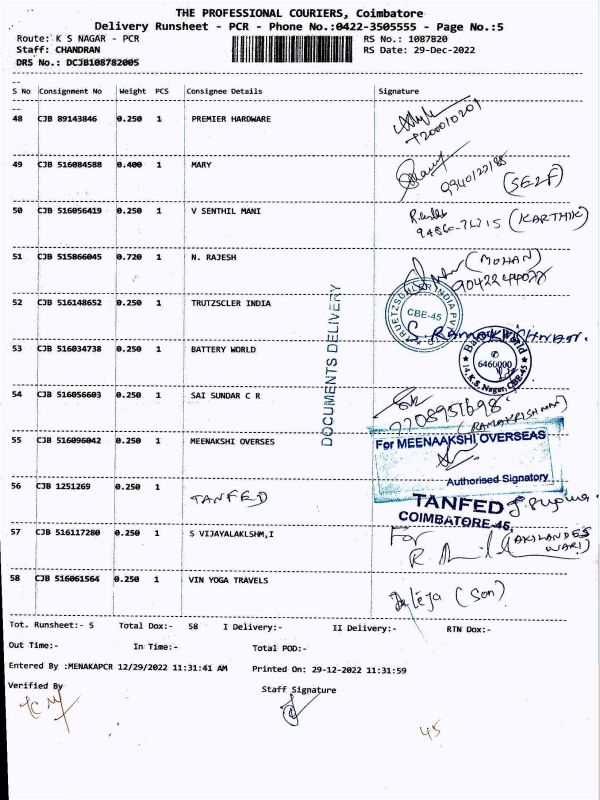 THE PROFESSIONAL COURIERS, Coimbatore
Delivery Runsheet - PCR - Phone No.:0422-3505555 - Page No.:5
Route: K S NAGAR - PCR RS No.: 1087820
Staff: CHANDRAN RS Date: 29-Dec-2022
DRS No.: DCJB108782005
S No Consignment No Weight PCS Consignee Details Signature
48 CJB 89143846 0.250 1 PREMIER HARDWARE
49 CJB 516084588 0.400 1 MARY
(SELF)
50 CJB 516056419 0.250 1 V SENTHIL MANI
(KARTHIK)
51 CJB 515866045 0.720 1 N. RAJESH
(MOHAN)
52 CJB 516148652 0.250 1 TRUTZSCLER INDIA
CBE-45
DOCUMENTS DELIVERY
53 CJB 516034738 0.250 1 BATTERY WORLD
Battery World
6460000
14, K.S. Nagar, CBE-45
54 CJB 516056603 0.250 1 SAI SUNDAR C R
2208951698
(RAMAKRISHNAN)
55 CJB 516096042 0.250 1 MEENAKSHI OVERSES
For MEENAAKSHI OVERSEAS
Authorised Signatory
56 CJB 1251269 0.250 1 TANFED
TANFED
COIMBATORE-45,
57 CJB 516117280 0.250 1 S VIJAYALAKLSHM,I
For
58 CJB 516061564 0.250 1 VIN YOGA TRAVELS
(Son)
Tot. Runsheet:- 5 Total Dox:- 58 I Delivery:- II Delivery:- RTN Dox:-
Out Time:- In Time:- Total POD:-
Entered By :MENAKAPCR 12/29/2022 11:31:41 AM Printed On: 29-12-2022 11:31:59
Verified By Staff Signature
45